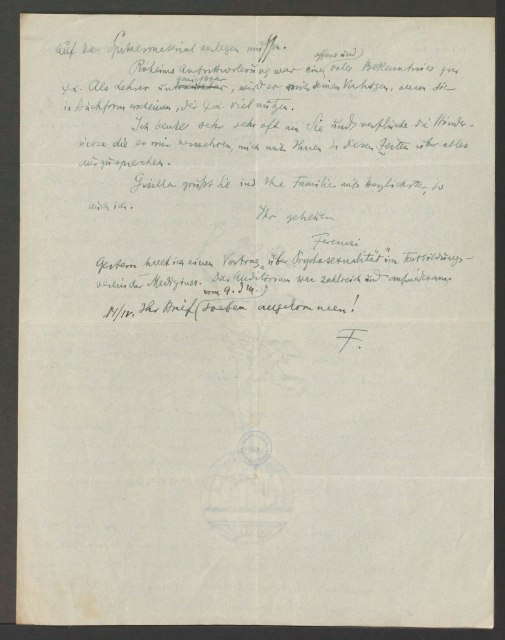 auf das Spitalsmaterial verlegen müssen.
offene und
Roheims Antrittsvorlesung war eine volle Bekenntnis zur
Ψα. Als Lehrer, wird er mit seinen Vorträgen, wenn sie
in Buchform erscheinen, der Ψα. viel nutzen.
Ich denke sehr sehr oft an Sie und verfluche die Hinder-
nisse die es mir verwehren, mich mit Ihnen in diesen Zeiten über alles
auszusprechen.
Gisella grüßt Sie und Ihre Familie aufs herzlichste, so
auch ich.
Ihr getreuer
Ferenczi
Gestern hielt ich einen Vortrag „über Psychosexualität“ im Fortbildungs-
verein der Mediziner. Das Auditorium war zahlreich und aufmerksam
vom 9. d M.
Ihr Brief soeben angekommen!
F.